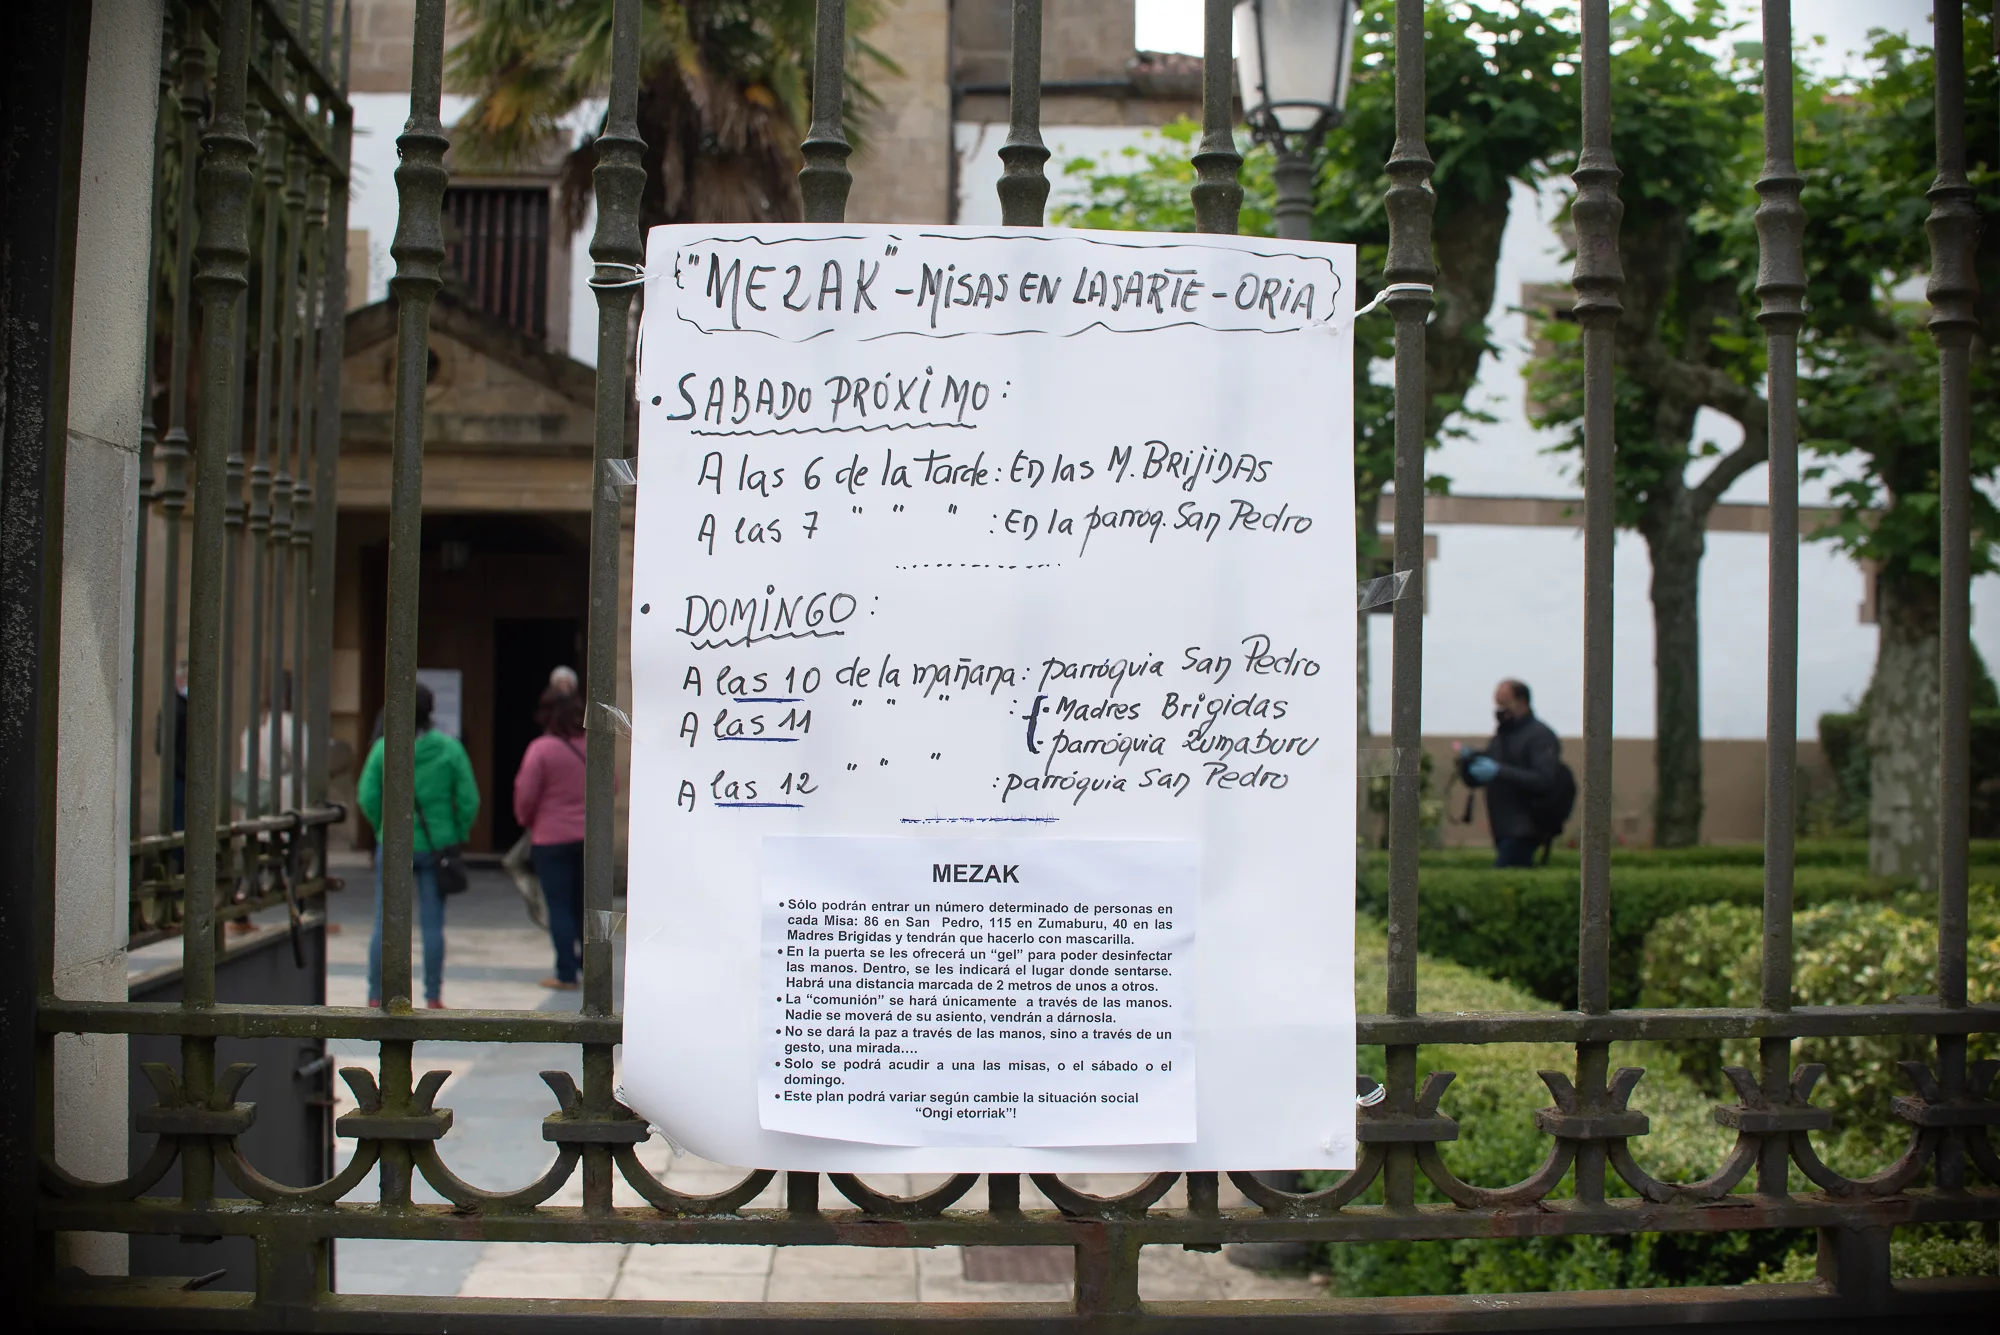 "MEZAK" - MISAS EN LASARTE - ORIA
• SABADO PRÓXIMO:
A las 6 de la tarde: En las M. BRIJIDAS
A las 7 " " " : En la parroq. San Pedro
• DOMINGO:
A las 10 de la mañana: parróquia San Pedro
A las 11 " " " : { • Madres Brigidas
• parróquia Zumaburu
A las 12 " " " : parróquia San Pedro
MEZAK
• Sólo podrán entrar un número determinado de personas en
cada Misa: 86 en San Pedro, 115 en Zumaburu, 40 en las
Madres Brigidas y tendrán que hacerlo con mascarilla.
• En la puerta se les ofrecerá un "gel" para poder desinfectar
las manos. Dentro, se les indicará el lugar donde sentarse.
Habrá una distancia marcada de 2 metros de unos a otros.
• La "comunión" se hará únicamente a través de las manos.
Nadie se moverá de su asiento, vendrán a dárnosla.
• No se dará la paz a través de las manos, sino a través de un
gesto, una mirada....
• Solo se podrá acudir a una las misas, o el sábado o el
domingo.
• Este plan podrá variar según cambie la situación social
"Ongi etorriak"!